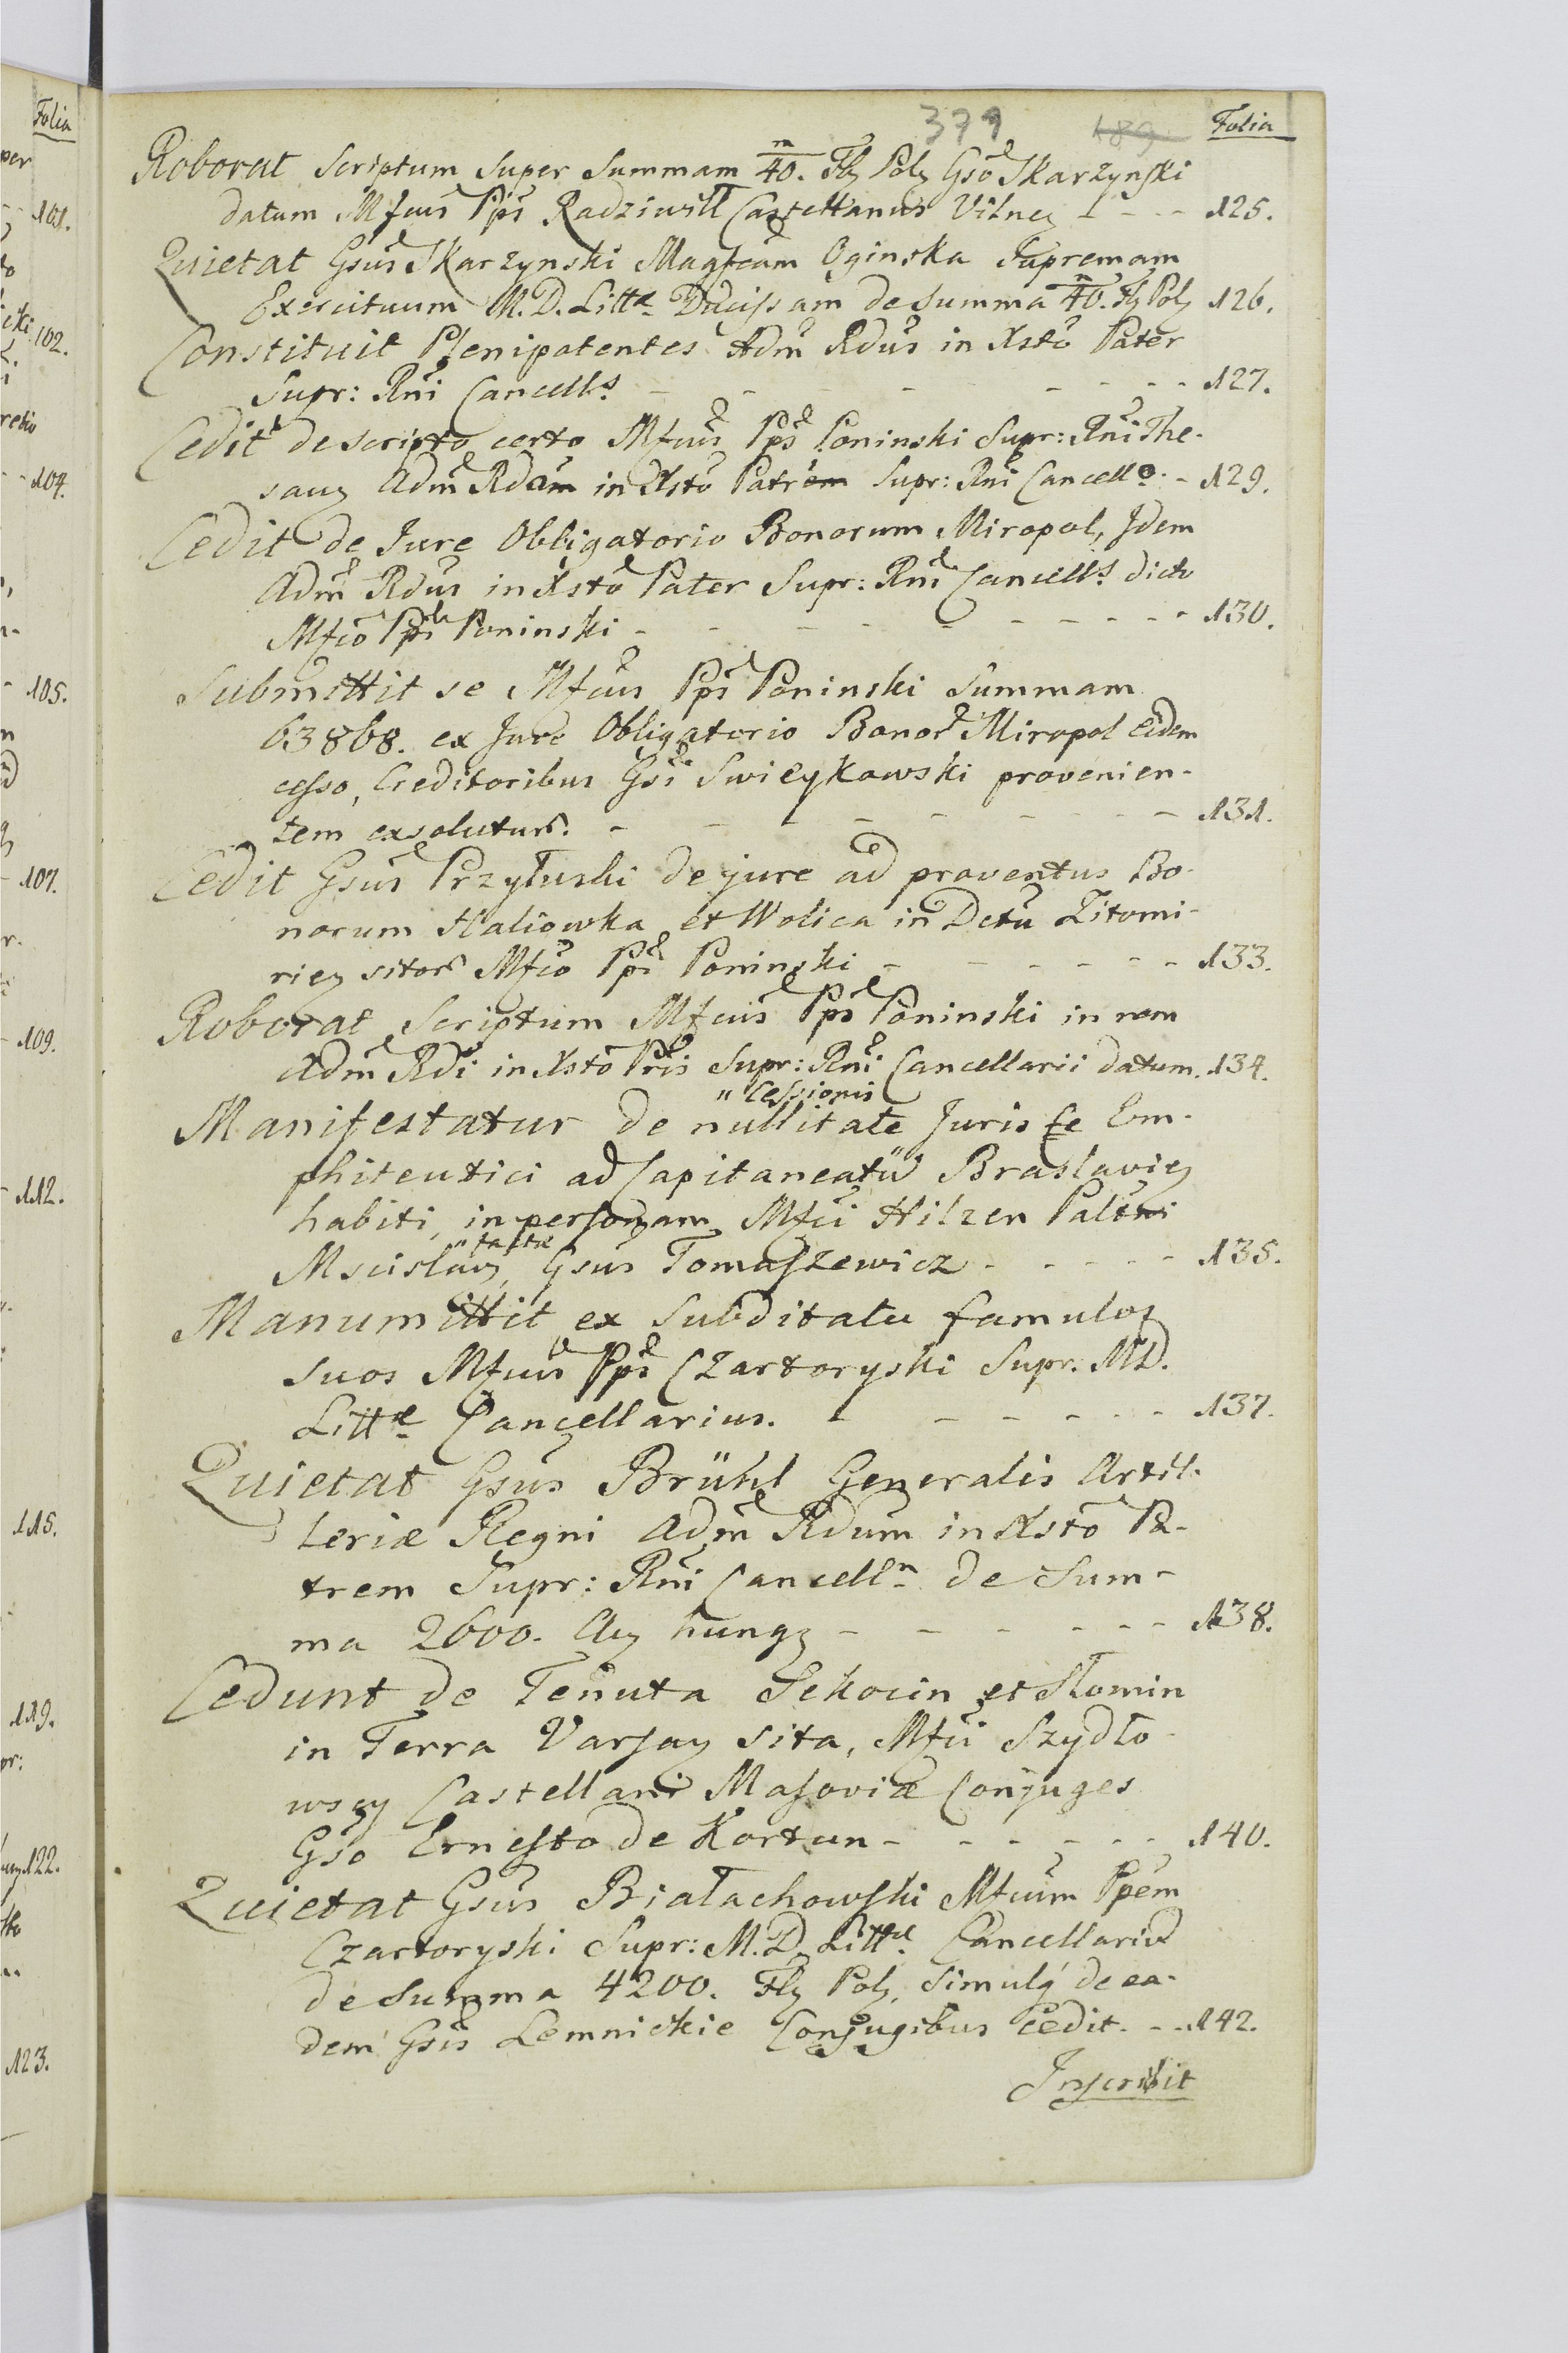 379 189 Folia
Roborat Scriptum super Summam m/40. Flɀ Polɀ Gsõ Skarzynski
datum Mfcus Pps Radziwiłł Castellanus Vilneɀ - - - 125.
Quietat Gsus Skarzynski Magfcam Oginska Supremam
Exercituum M. D. Littæ Ducissam de Summa m/40. Flɀ Polɀ 126.
Constituit Plenipotentes Adm Rdus in Xsto Pater
Supr: Rni Cancells - - - - - - 127.
Cedit de scripto certo Mfcus Pps Poninski Supr: Rni The-
sauɀ Adm Rdum in Xsto Patrem Supr: Rni Cancello - 129.
Cedit de Jure Obligatorio Bonorum Miropol, Idem
Adm Rdus in Xsto Pater Supr: Rni Cancells dicto
Mfco Ppi Poninski - - - - - - 130.
Submittit se Mfcus Pps Poninski Summam
63868. ex Jure Obligatorio Bonor Miropol eidem
cesso, Creditoribus Gsi Swieykowski provenien-
tem exsolutur. - - - - - - 131.
Cedit Gsus Przyłuski de jure ad proventus Bo-
norum Haliowka et Wolica in Dctu Zitomi-
rieɀ sitor Mfco Ppi Poninski - - - - - 133.
Roborat Scriptum Mfcus Pps Poninski in rem
Adm Rdi in Xsto Pris Supr: Rni Cancellarii datum. 134.
" Cessionis
Manifestatur de nullitate Juris se Em-
phiteutici ad Capitaneatu" Braslavieɀ
habiti, in personam Mfci Hilzen Paltni
" factæ
Mscislavɀ, Gsus Tomaszewicz - - - - - 135.
Manumittit ex subditatu famulos
suos Mfcus Pps Czartoryski Supr. M.D.
Littæ Cancellarius. - - - - - 137.
Quietat Gsus Brühl Generalis Artil-
leriæ Regni Adm Rdum in Xsto Pa-
trem Supr: Rni Cancelln de Sum-
ma 2600. Auɀ hungɀ - - - - - 138.
Cedunt de Tenuta Sekocin et Słomin
in Terra Varsaɀ sita, Mfci Szydło-
wscy Castellani Masoviæ Conjuges
Gso Ernesto de Kortun - - - - - 140.
Quietat Gsus Białachowski Mfcum Ppem
Czartoryski Supr: M. D. Littæ Cancellariu
de Summa 4200. Flɀ Polɀ, simulq de ea-
dem Gsis Lemnickie Conjugibus cedit. - - 142.
Inscribit
Folia
101.
102.
104.
105.
107.
109.
112.
115.
119.
122.
123.